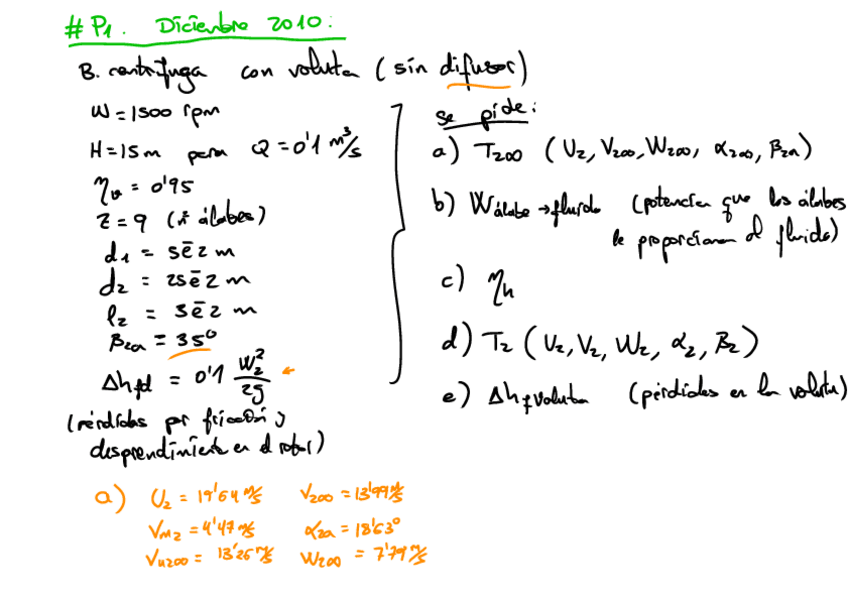 # P1. Diciembre 2010:
B. centrífuga con voluta (sin difusor)
W = 1500 rpm
H = 15 m para Q = 0'1 m³/s
ηv = 0'95
z = 9 (nº álabes)
d1 = 5ē2 m
d2 = 25ē2 m
l2 = 3ē2 m
β2a = 35°
Δhfd = 0'1 W2²/2g
(pérdidas por fricción y
desprendimiento en el rotor)
se pide:
a) T2∞ (U2, V2∞, W2∞, α2∞, β2a)
b) Wálabe→fluido (potencia que los álabes
le proporcionan al fluido)
c) ηh
d) T2 (U2, V2, W2, α2, β2)
e) Δhfvoluta (pérdidas en la voluta)
a) U2 = 19'64 m/s V2∞ = 13'99 m/s
VM2 = 4'47 m/s α2a = 18'63°
Vu2∞ = 13'26 m/s W2∞ = 7'79 m/s